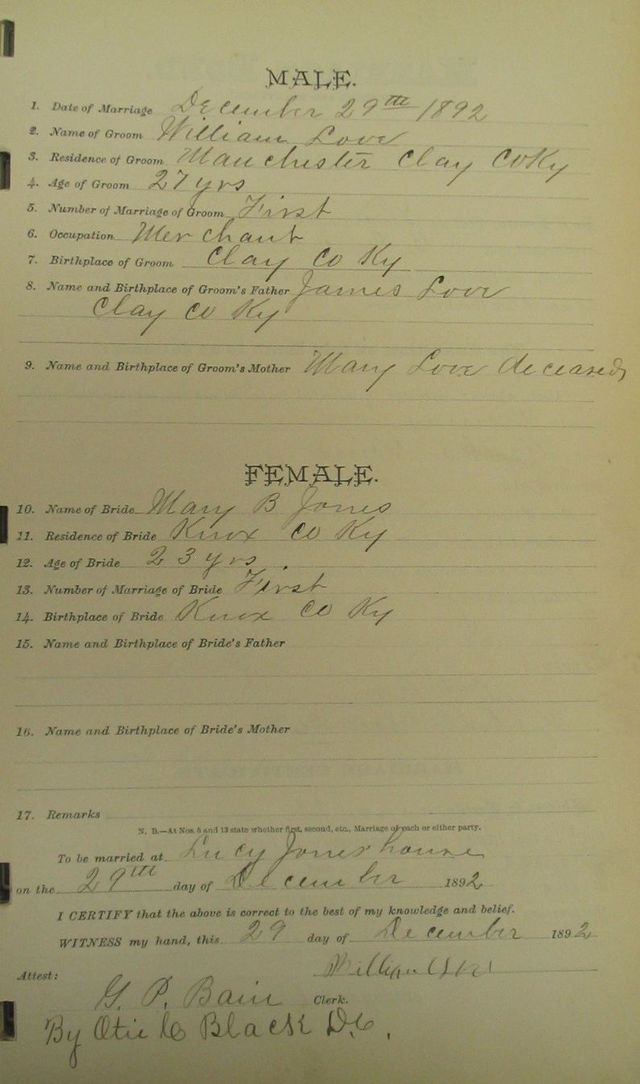 MALE.
1. Date of Marriage December 29th 1892
2. Name of Groom William Love
3. Residence of Groom Manchester Clay Co Ky
4. Age of Groom 27 yrs
5. Number of Marriage of Groom First
6. Occupation Merchant
7. Birthplace of Groom Clay Co Ky
8. Name and Birthplace of Groom's Father James Love
Clay Co Ky
9. Name and Birthplace of Groom's Mother Mary Love deceased
FEMALE.
10. Name of Bride Mary B Jones
11. Residence of Bride Knox Co Ky
12. Age of Bride 23 yrs
13. Number of Marriage of Bride First
14. Birthplace of Bride Knox Co Ky
15. Name and Birthplace of Bride's Father
16. Name and Birthplace of Bride's Mother
17. Remarks
N. B.—At Nos. 5 and 13 state whether first, second, etc., Marriage of each or either party.
To be married at Lucy Jones house
on the 29th day of December 1892
I CERTIFY that the above is correct to the best of my knowledge and belief.
WITNESS my hand, this 29 day of December 1892
William Love
Attest:
G. P. Bain Clerk.
By Black D.C.